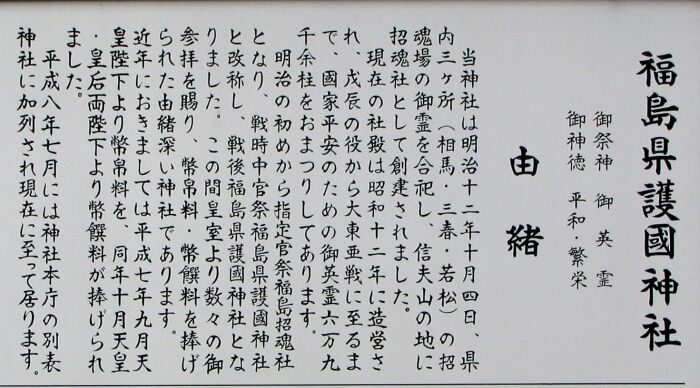 福島県護國神社
御祭神 御英霊
御神徳 平和・繁栄
由緒
当神社は明治十二年十月四日、県
内三ヶ所（相馬・三春・若松）の招
魂場の御霊を合祀し、信夫山の地に
招魂社として創建されました。
現在の社殿は昭和十二年に造営さ
れ、戊辰の役から大東亜戦に至るま
で、國家平安のための御英霊六万九
千余柱をおまつりしてあります。
明治の初めから指定官祭福島招魂社
となり、戦時中官祭福島県護國神社
と改称し、戦後福島県護國神社とな
りました。この間皇室より数々の御
参拝を賜り、幣帛料・幣饌料を捧げ
られた由緒深い神社であります。
近年におきましては平成七年九月天
皇陛下より幣帛料を、同年十月天皇
・皇后両陛下より幣饌料が捧げられ
ました。
平成八年七月には神社本庁の別表
神社に加列され現在に至って居ります。